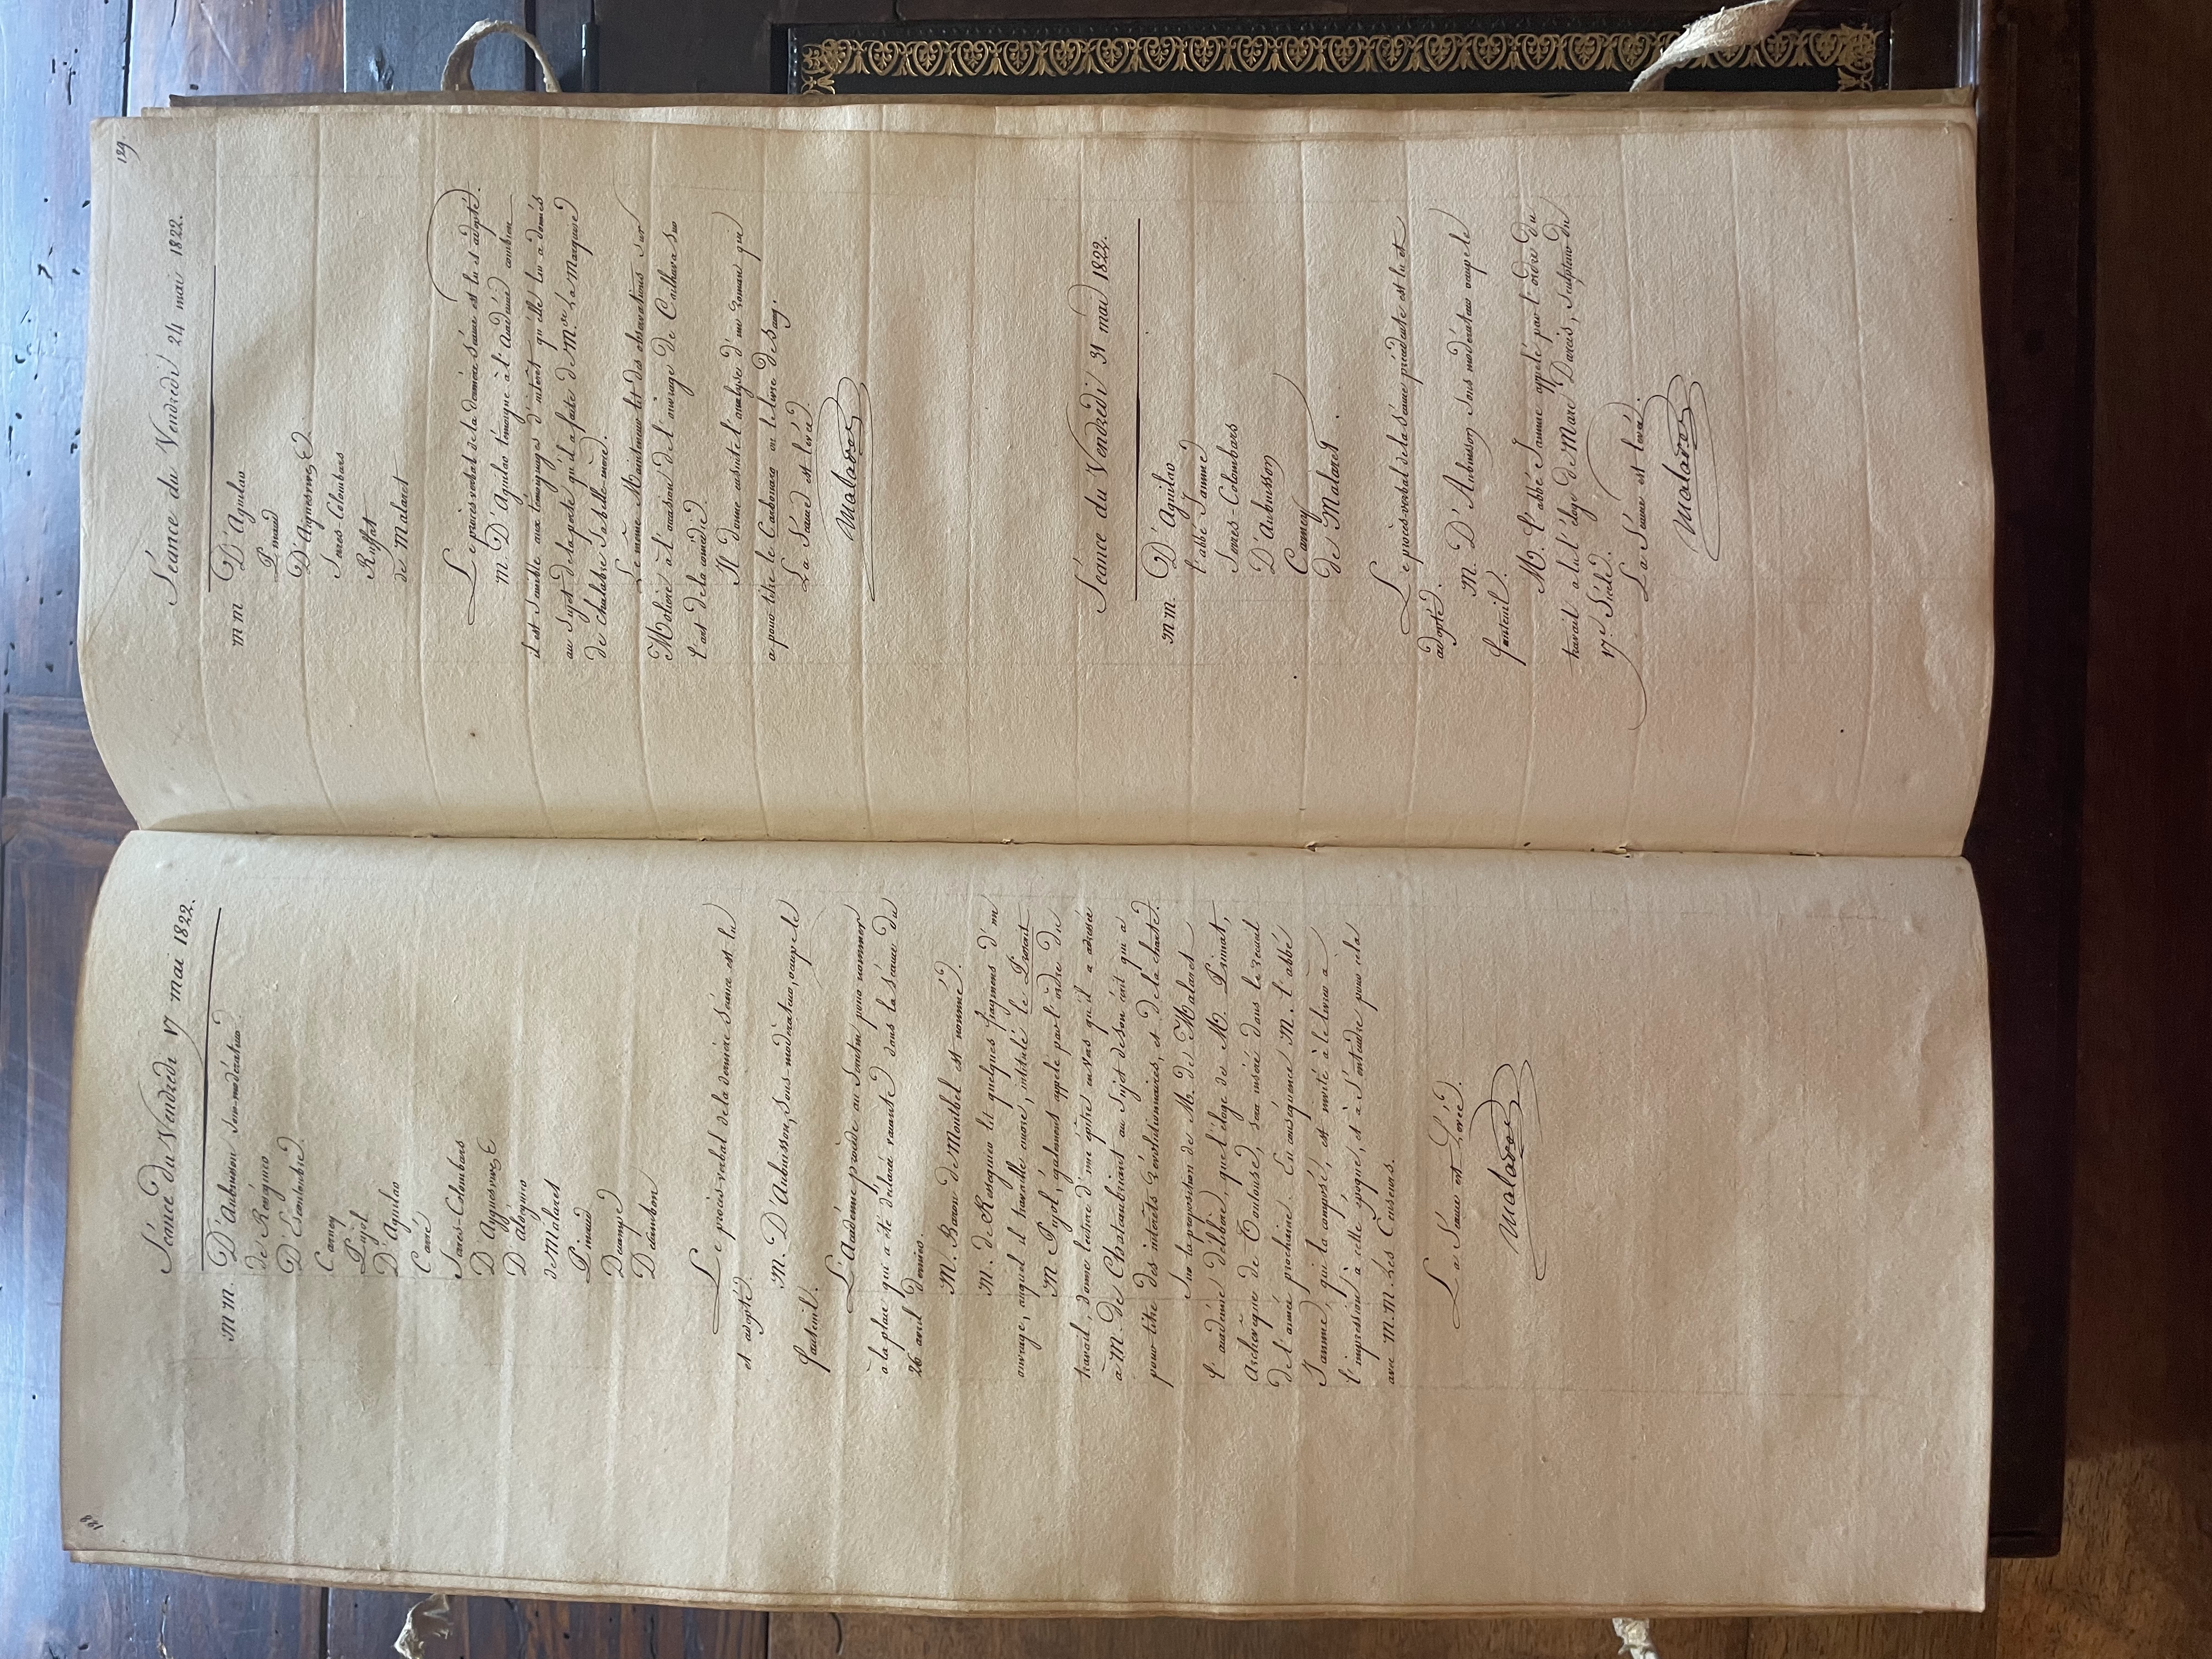 188
Séance du Vendredi 17 mai 1822.
M.M. D'Aubuisson sous-modérateur
de Rességuier
D'Escouloubre
Carney
Pujol
D'Aguilar
Carré
Serres-Colombars
D'Aiguesvives
D'aldeguier
de Malaret
Pinaud
Decampe
Delambon
Le procès-verbal de la dernière Séance est lu
et adopté.
M. D'Aubuisson, Sous-modérateur, occupe le
fauteuil.
L'Académie procède au Scrutin pour nommer
à la place qui a été déclarée vacante dans la Séance du
26 avril dernier.
M. Baron de Montbel est nommé.
M. de Rességuier lit quelques fragmens d'un
ouvrage, auquel il travaille encore, intitulé le Proscrit
M Pujol, également appelé par l'ordre du
travail, donne lecture d'une épitre en vers qu'il a adressée
à M. de Chateaubriant au Sujet de son écrit qui a
pour titre des intérêts Révolutionnaires, et de la charte.
Sur la proposition de M. de Malaret
l'académie délibère, que l'éloge de M. Primat,
Archevêque de Toulouse, sera inséré dans le recueil
de l'année prochaine. En conséquence M. l'abbé
Jamme, qui l'a composé, est invité à le livrer à
l'impression à cette époque, et à S'entendre pour cela
avec M.M. les Censeurs.
La Séance est Levée.
Malaret
189
Séance du Vendredi 24 mai 1822.
M M D'Aguilar
Pinaud
D'Aiguesvives
Serres-Colombars
Ruffat
de Malaret
Le procès-verbal de la dernière Séance est lu et adopté.
M. D'Aguilar témoigne à l'Académie combien
il est Sensible aux témoignages d'intérêt qu'elle lui a donnés
au Sujet de la perte qu'il a faite de Mde La Marquise
de Chalabre Sa belle-mère.
Le même Mainteneur lit des observations Sur
Molière à l'occasion de l'ouvrage de Cailhava Sur
l'art de la comédie.
Il donne ensuite l'analyse d'un Roman qui
a pour titre le Carbonaro ou le livre de Sang.
La Séance est levée.
Malaret
Séance du Vendredi 31 mai 1822.
M M. D'Aguilar
l'abbé Jamme
Serres-Colombars
D'Aubuisson
Carney
de Malaret
Le procès-verbal de la Séance précédente est lu et
adopté.
M. D'Aubuisson Sous modérateur occupe le
fauteuil.
M. l'abbé Jamme appelé par l'ordre du
travail a lu l'éloge de Marc Darcis, Sculpteur du
17e Siècle.
La Séance est levée.
Malaret